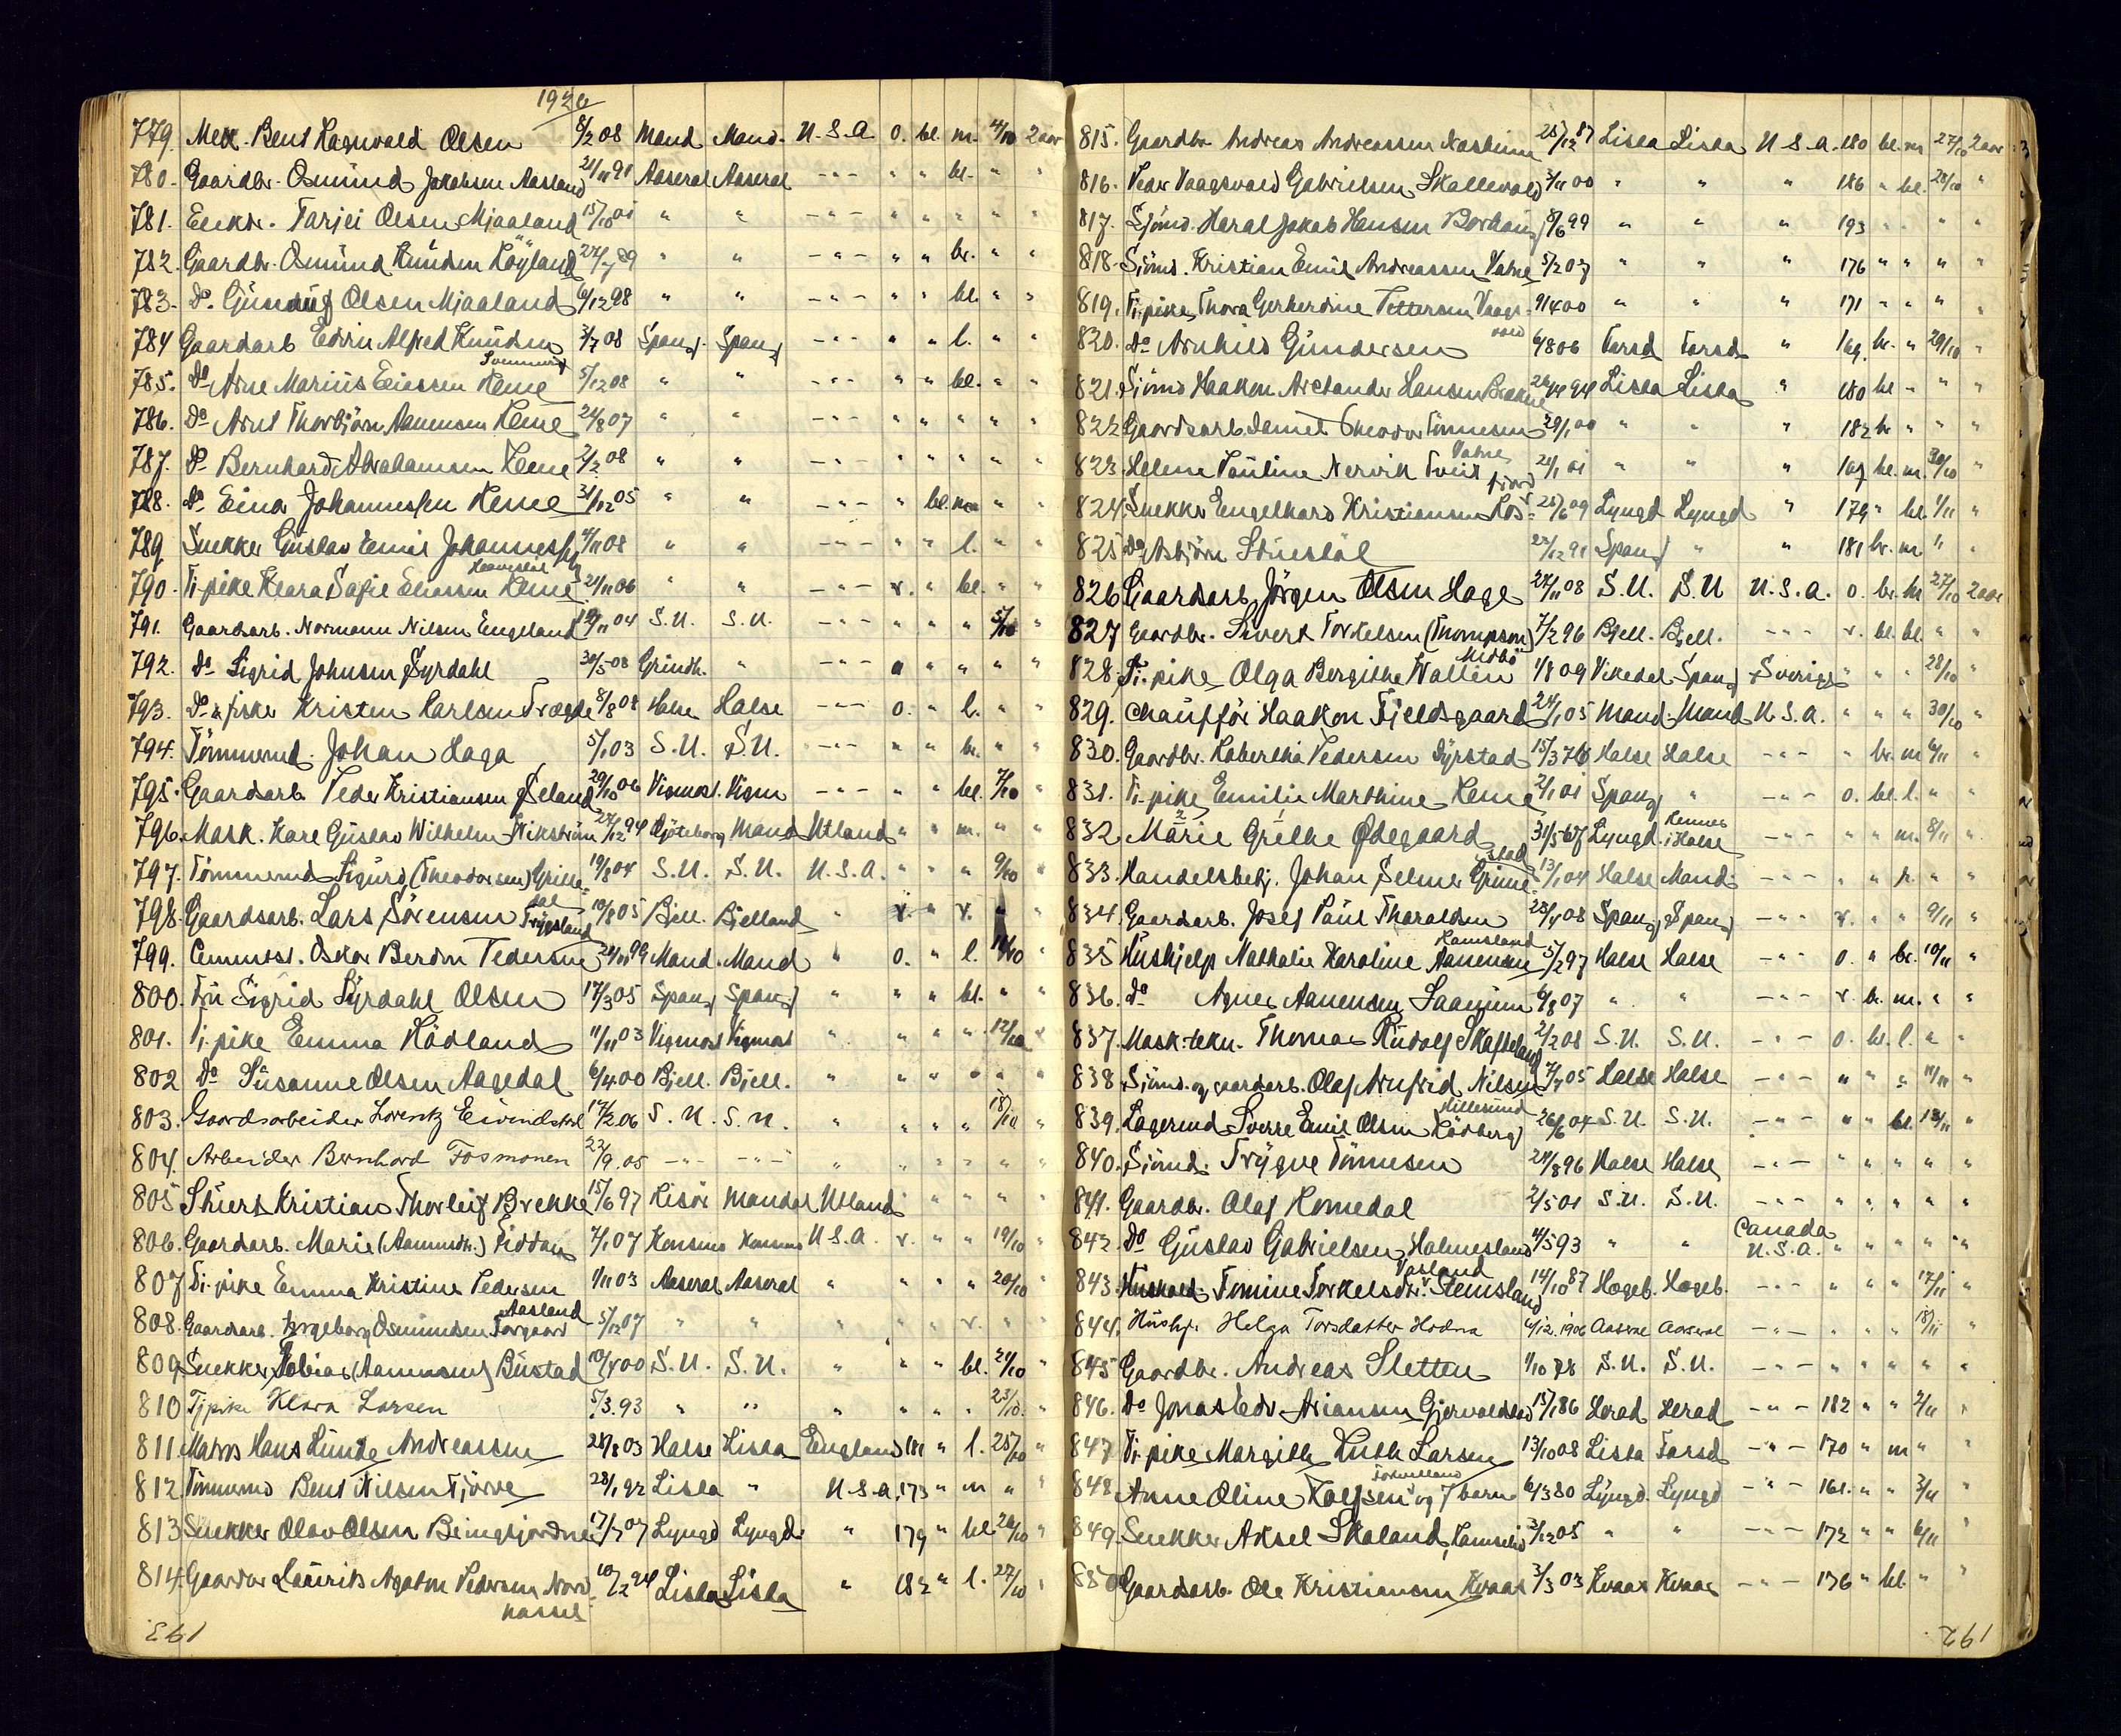 1926
779. Mek. Bent Ragnvald Olsen 8/2 08 Mand Mand. U.S.A. o. bl. m. 4/10 2 aar
780. Gaardbr. Osmünd Jakobsen Aasland 21/11 91 Aaseral Aaseral -"- " " bl. " "
781. Enkbr. Tarjei Olsen Mjaaland 15/10 01 " " -"- " " " " "
782. Gaardbr. Osmünd Knüdsen Röyland 27/7 89 " " -"- " " br. " "
783. Do. Olsen Mjaaland 6/12 98 " " -"- " " bl. " "
784 Gaardarb Edvin Alfred Knüdsen 3/7 08 Spang. Spang -"- " " l. " "
785. Do Arne Marius Eliassen Rème 5/12 08 " " -"- " " bl. " "
786. Do Arnt Thorbjörn Aanensen Reme 24/8 07 " " -"- " " " " "
787. Do Bernhard Abrahamsen Reme 2/2 08 " " -"- " " " " "
788. Do Einar Johannessen Reme 31/12 05 " " -"- " bl. " "
789 Snekker Güstav Emil Johannessen 4/11 08 " " -"- " " l. " "
790. Tj. pike Klara Sofie Eliassen Reme 21/11 06 " " -"- v. " bl. " "
791. Gaardsarb. Normann Nilsen Engeland 19/11 04 S.U. S.U. -"- " " " 5/10 "
792. Do Sigrid Johnsen Syrdahl 30/5-08 Grindh. " -"- " " " " "
793. Do & fisker Kristen Karlsen Trægde 8/8 08 Halse Halse -"- o. " l. " "
794. Tömmermd. Johan Haga 5/1 03 S.U. S.U. -"- " " br. " "
795. Gaardsarb. Peder Kristiansen Øeland 29/10 06 Vigmost. Vigm -"- " " bl. 7/10 "
796. Mask. Karl Güstav Wilhelm Wikström 27/12 94 Göteborg Mand Utland " " m. " "
797. Tömmermd Sigürd (Theodorsen) Grille- 19/8 04 S.U. S.U. U.S.A. " " " 9/10 "
dal
798. Gaardsarb. Lars Sörensen Trygsland 10/8 05 Bjell. Bjelland " v. " v. " "
799. Oskar Berdon Pedersen 24/11 99 Mand. Mand " o. " l. 11/10 "
800. Frü Sigrid Syrdahl Olsen 17/3 05 Spang Spang " " " bl. " "
801. Tj. pike Emma Rödland 11/11 03 Vigmost Vigmost " " " " 12/10 "
802 Do Süsanne Olsen Aagedal 6/4 00 Bjell. Bjell. " " " " " "
803. Gaardsarbeider Lorentz Eivindstal 17/2 06 S.U. S.U. " " " " 18/10 "
804. Arbeider Bernhard Fosmonen 22/9.05 -"- -"- " " " " " "
805 Kristian Thorleif Brekke 15/6 97 Risör Mandal Utland " " " " "
806. Gaardsarb. Marie (Aamundsdtr.) Fiddan 7/1 07 Konsmo Konsmo U.S.A. v. " " 19/10 "
807 Tj. pike Emma Kristine Pedersen 1/11 03 Aaseral Aaseral " " " " 20/10 "
Aasland
808. Gaardsarb. Ingeborg Osmündsen Torgaard 5/12 07 " " " " " v. " "
809 Snekker Tobias (Aanensen) Büstad 10/4 00 S.U. S.U. " " " bl. 21/10 "
810 Tj pike Klara Larsen 5/3.93 " " " " " " 23/10. "
811 Matros Hans Andreassen 28/8 03 Halse Lista England 181 " l. 25/10 "
812 Tömmermd Bent Nilsen Tjörve 28/1 92 Lista " U.S.A. 173 " m " "
813 Snekker Olav Olsen Bringsjordnes 17/7 07 Lyngd Lyngd. " 179 " bl. 26/10 "
814. Gaardbr Laürits Agaton Pedersen Nord- 10/2 94 Lista Lista " 182 " l. 27/10 "
hassel
193
815. Gaardbr. Andreas Andreassen 25/12 87 Lista Lista U.S.A. 180 bl. m 27/10 2 aar
816. Peder Vaagsvold Gabrielsen Skallevold 3/11 00 " " " 186 " bl. 28/10 "
817. Sjömd. Haral Jakob Hansen Borhaug 8/6 99 " " " 193 " " " "
818. Sjömd. Kristian Emil Andreassen Vatne 5/2 07 " " " 176 " " " "
819. Tj. pike Thora Gerhardine Pettersen Vaags- 9/4 00 " " " 171 " " " "
vold
820. Do Arnhild Gündersen 6/8 06 Farsd Farsd " 169. br. " 29/10 "
821. Sjömd Haakon Alexander Hansen 26/4 94 Lista Lista " 180 bl " " "
822 Gaardsarb. Daniel Theodor Tönnesen 29/1 00 " " " 182 br " " "
Vatne
823. Helene Paüline Nervik Tveit 21/1 01 " " " 169 bl. m. 30/10 "
fjord
824. Snekker Engelhard Kristiansen Ros- 25/6 09 Lyngd Lyngd " 179 " bl. 1/11 "
825 Do Asbjörn 22/12 91 Spang " " 181 br. m " "
826 Gaardsarb. Jörgen Olsen Hage 27/11 08 S.U. S.U U.S.A. o. br. br 27/10 2 aar
827 Gaardbr. Sivert Torkelsen (Thompson) 7/2 96 Bjell. Bjell. -"- v. bl. bl. " "
Midbö
828. Tj. pike Olga Bergithe Wallin 1/8 09 Vikedal Spang Sverige " " " 28/10 "
829. Chaufför Haakon Fjeldsgaard 24/1 05 Mand. Mand U.S.A. " " " 30/10 "
830. Gaardbr. Pedersen Dyrstad 15/3 76 Halse Halse -"- " br. m 6/11 "
831. Tj. pike Emilie Marthine Reme 2/1 01 Spang " -"- o. bl. l. " "
832. Marie Grethe Ødegaard 31/5-67 Lyngd. i Halse -"- " " m. 8/11 "
stad
833. Handelsbetj. Johan Selmer Grime- 13/1 04 Halse Mand. -"- " " " "
834. Gaardarb. Josef Paül Tharaldsen 23/4 08 Spang. Spang -"- v. " " 9/11 "
Ramsland
835 Hüshjelp Nathalie Karoline Aanensen 5/2 97 Halse Halse -"- o. " br. 10/11 "
836. Do Agnes Aanensen Saanum 6/8 07 " " -"- v. br. m. " "
837. Mask.tekn. Thomas Rüdolf Skafseland 2/2 08 S.U. S.U. -"- o. br. l. " "
838 Sjömd. og gaardarb. Olaf Arnfrid Nilsen 7/7 05 Halse Halse -"- " " " 11/11 "
Hillesund
839. Lagermd Sverre Emil Olsen Rödberg 26/6 04 S.U. S.U. -"- " " bl. 13/11 "
840. Sjömd. Trygve Tönnesen 24/8 96 Halse Halse -"- " " " " "
841. Gaardbr. Olaf Homedal 2/5 01 S.U. S.U. -"- " " " " "
Canada
842. Do Güstav Gabrielsen Holmesland 4/5 93 " " U.S.A. " " " " "
843. Tomine Torkelsdtr. Stensland 14/10 87 Hægeb. Hægeb. -"- " " " 17/11 "
844. Hüshj. Helga Torsdatter Hodna 4/12. 1906 Aaseral Aaseral -"- " " " 18/11 "
845 Gaardbr. Andreas Sletten 1/10 78 S.U. S.U. -"- " " " " "
846. Do Jonas Edv. Ariansen 15/1 86 Herad Herad -"- 182 " " 2/11 "
847 Tj. pike Margith Rüth Larsen 13/10 08 Lista Farsd -"- 170 " m " "
848 Anne Oline og 7 barn 6/3 80 Lyngd. Lyngd -"- 161. " " 3/11 "
849 Snekker Aksel Skaland, 3/12 05 " " -"- 172 " " 6/11 "
850 Gaardsarb. Ole Kristiansen Kvaas 3/3 03 Kvaas Kvaas -"- 176 " bl. " "
192.